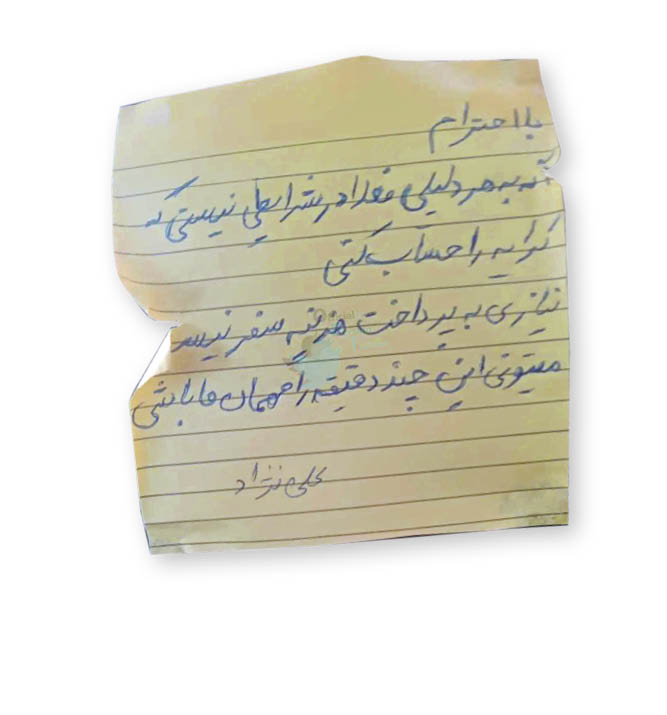 با احترام
اگه به هر دلیلی فعلا در شرایطی نیستی که
کرایه را حساب کنی
نیازی به پرداخت هزینه سفر نیست
میتونی این چند دقیقه را مهمان ما باشی
علی نژاد